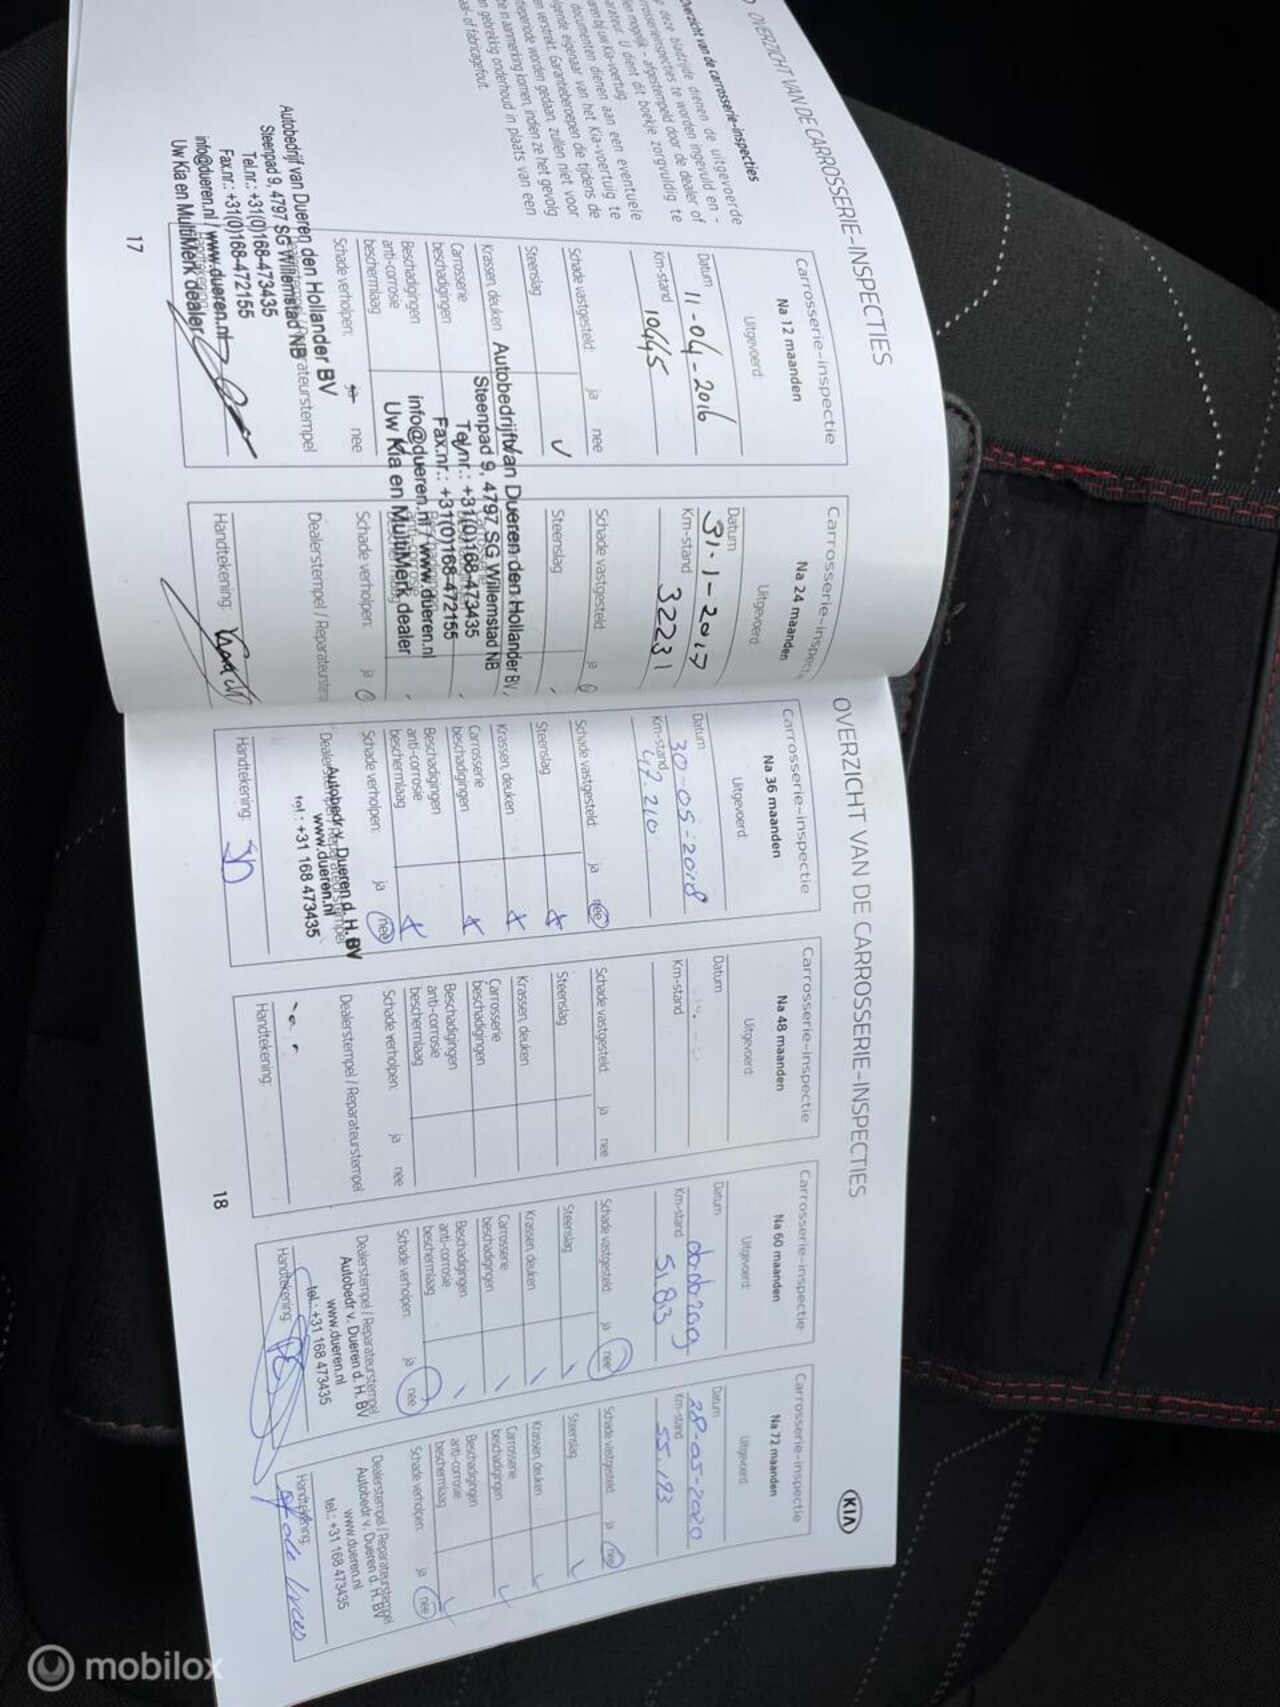 OVERZICHT VAN DE CARROSSERIE-INSPECTIES
Overzicht van de carrosserie-inspecties
deze bladzijde dienen de uitgevoerde
te worden ingevuld en -
mogelijk - afgestempeld door de dealer of
U dient dit boekje zorgvuldig te
bij uw Kia-voertuig
documenten dienen aan een eventuele
eigenaar van het Kia-voertuig te
verstrekt. Garantieberoepen die tijdens de
worden gedaan, zullen niet voor
in aanmerking komen, indien ze het gevolg
gebrekkig onderhoud in plaats van een
of fabricagefout.
Carrosserie-inspectie
Na 12 maanden
Uitgevoerd:
Datum 11-04-2016
Km-stand 10445
Schade vastgesteld: ja nee
Steenslag
Krassen, deuken
Carrosserie
beschadigingen
Beschadigingen
anti-corrosie
beschermlaag
Schade verholpen: ja nee
Autobedrijf van Dueren den Hollander BV
Steenpad 9, 4797 SG Willemstad NB
Tel.nr.: +31(0)168-473435
Fax.nr.: +31(0)168-472155
info@dueren.nl / www.dueren.nl
Uw Kia en MultiMerk dealer
17
Carrosserie-inspectie
Na 24 maanden
Uitgevoerd:
Datum 31-1-2017
Km-stand 32231
Schade vastgesteld: ja
Steenslag
Autobedrijf van Dueren den Hollander BV
Steenpad 9, 4797 SG Willemstad NB
Tel.nr.: +31(0)168-473435
Fax.nr.: +31(0)168-472155
info@dueren.nl / www.dueren.nl
Uw Kia en MultiMerk dealer
Schade verholpen: ja
Dealerstempel / Reparateurstempel
Handtekening:
OVERZICHT VAN DE CARROSSERIE-INSPECTIES
Carrosserie-inspectie
Na 36 maanden
Uitgevoerd:
Datum 30-05-2018
Km-stand 47.210
Schade vastgesteld: ja nee
Steenslag
Krassen, deuken
Carrosserie
beschadigingen
Beschadigingen
anti-corrosie
beschermlaag
Schade verholpen: ja nee
Dealerstempel / Reparateurstempel
Autobedr v. Dueren d. H. BV
www.dueren.nl
tel.: +31 168 473435
Handtekening:
Carrosserie-inspectie
Na 48 maanden
Uitgevoerd:
Datum
Km-stand
Schade vastgesteld: ja nee
Steenslag
Krassen, deuken
Carrosserie
beschadigingen
Beschadigingen
anti-corrosie
beschermlaag
Schade verholpen: ja nee
Dealerstempel / Reparateurstempel
Handtekening:
18
Carrosserie-inspectie
Na 60 maanden
Uitgevoerd:
Datum
Km-stand 51.813
Schade vastgesteld: ja nee
Steenslag
Krassen, deuken
Carrosserie
beschadigingen
Beschadigingen
anti-corrosie
beschermlaag
Schade verholpen: ja nee
Dealerstempel / Reparateurstempel
Autobedr v. Dueren d. H. BV
www.dueren.nl
tel.: +31 168 473435
Handtekening:
Carrosserie-inspectie
Na 72 maanden
Uitgevoerd:
Datum 28-05-2020
Km-stand 55.123
Schade vastgesteld: ja nee
Steenslag
Krassen, deuken
Carrosserie
beschadigingen
Beschadigingen
anti-corrosie
beschermlaag
Schade verholpen: ja nee
Dealerstempel / Reparateurstempel
Autobedr v. Dueren d. H. BV
www.dueren.nl
tel.: +31 168 473435
Handtekening:
KIA
mobilox